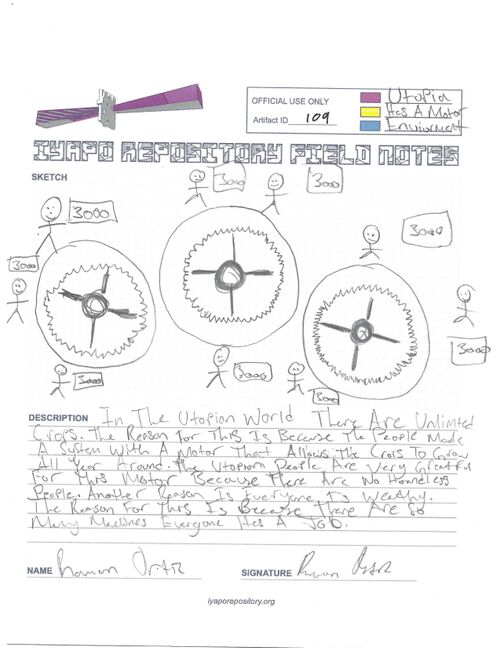 OFFICIAL USE ONLY
Artifact ID 109
Utopia
Has A Motor
Enviorment
IYAPO REPOSITORY FIELD NOTES
SKETCH
3000
3000
3000
3000
3000
3000
3000
3000
3000
3000
DESCRIPTION In The Utopian World There Are Unlimted
Crops. The Reason For This Is Because The People Made
A System With A Motor That Allows The Crops To Grow
All Year Around. The Utopian People Are Very Greatful
For This Motor Because There Are No Homeless
People. Another Reason Is Everyone Is Wealthy.
The Reason For This Is Because There Are So
Many Machines Everyone Has A Job.
NAME Ramon Ortiz SIGNATURE
iyaporepository.org